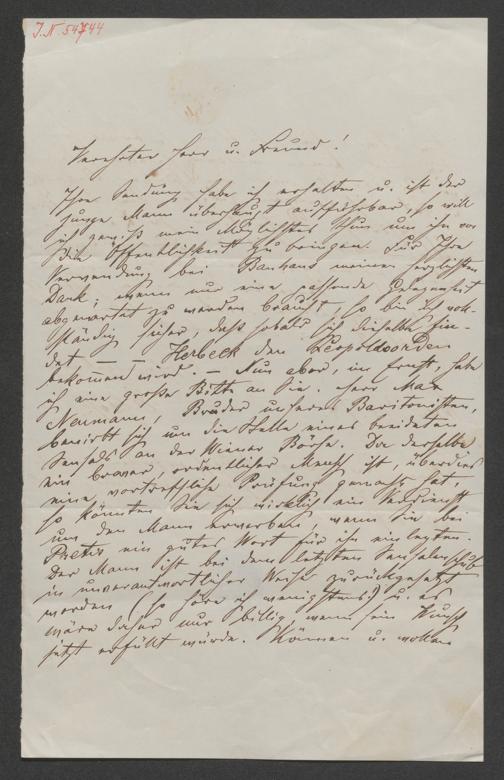 J. N. 54744
Verehrter Herr u. Freund!
Ihre Sendung habe ich erhalten u. ist der
junge Mann überhaupt aufführbar, so will
ich gewiß mein Möglichstes thun um ihn vor
die Öffentlichkeit zu bringen. Für Ihre
Verwendung bei Banhans meinen herzlichsten
Dank; wenn nur eine passende Gelegenheit
abgewartet zu werden braucht, so bin ich voll-
ständig sicher, daß sobald sich dieselbe fin-
det — — Herbeck den Leopoldsorden
bekommen wird. — Nun aber, im Ernst, habe
ich eine große Bitte an Sie. Herr Max
Neumann, Bruder unseres Baritonisten,
bewirbt sich um die Stelle eines beeideten
Sensals an der Wiener Börse. Da derselbe
ein braver, ordentlicher Mensch ist, überdies
eine vortreffliche Prüfung gemacht hat,
so könnten Sie sich wirklich ein Verdienst
um den Mann erwerben, wenn Sie bei
Pretis ein gutes Wort für ihn einlegten.
Der Mann ist bei dem letzten
in unverantwortlicher Weise zurückgesetzt
worden (so höre ich wenigstens) u. es
wäre daher nur billig, wenn sein Wunsch
jetzt erfüllt würde. Können u. wollen